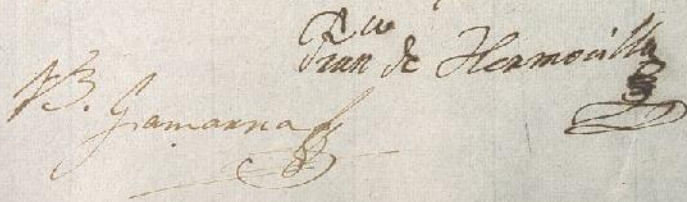 Juan de Hermosilla
VB. Gamarra